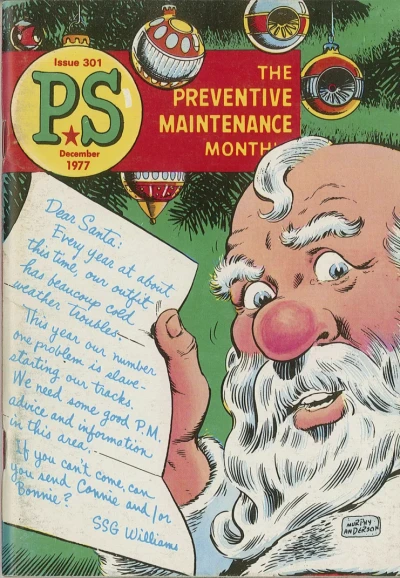 Issue 301
PS
December
1977
THE
PREVENTIVE
MAINTENANCE
MONTH
Dear Santa:
Every year at about
this time, our outfit
has beaucoup cold
weather troubles.
This year our number
one problem is slave-
starting our tracks.
We need some good P.M.
advice and information
in this area.
If you can't come, can
you send Connie and/or
Bonnie?
SSG Williams
MURPHY
ANDERSON